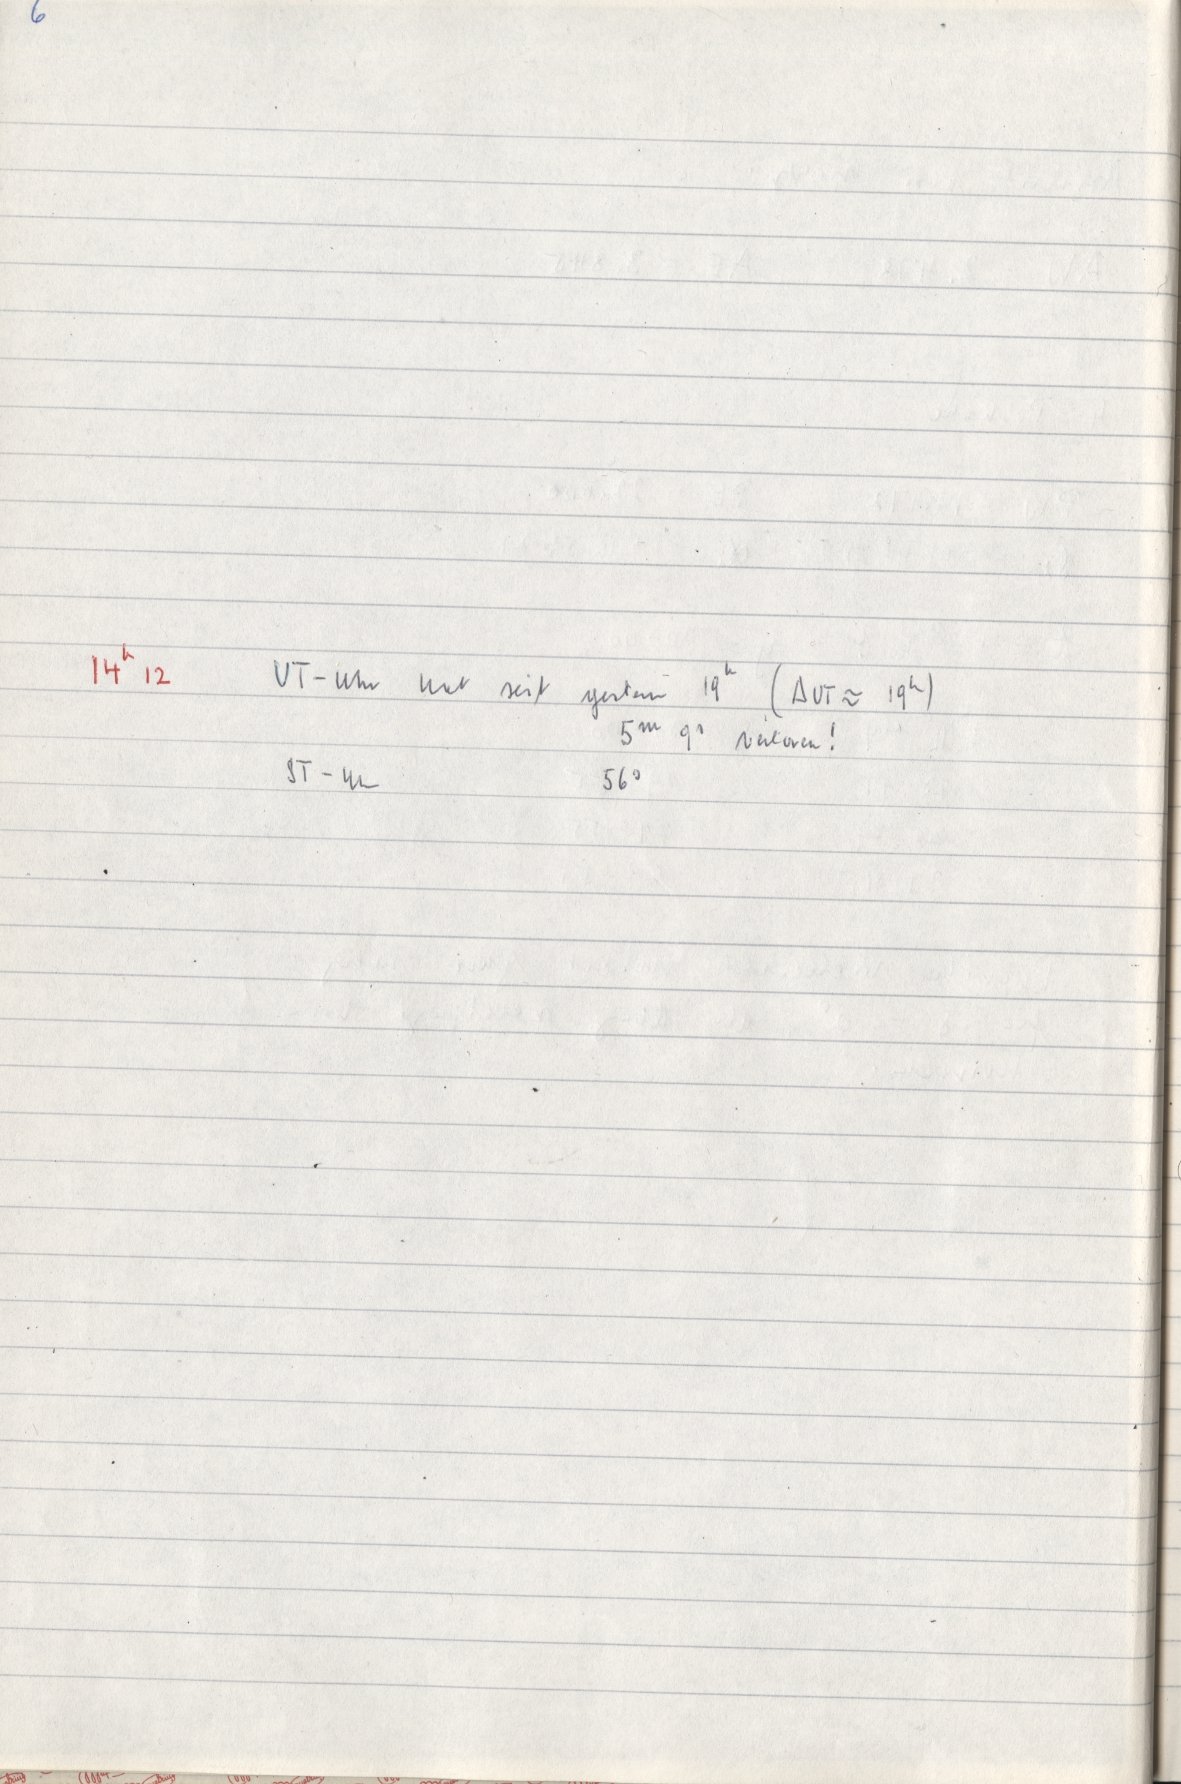 6
14ʰ 12 UT-Uhr hat seit gestern 19ʰ (ΔUT ≈ 19ʰ)
5ᵐ 9ˢ verloren!
ST-Uhr 56ˢ